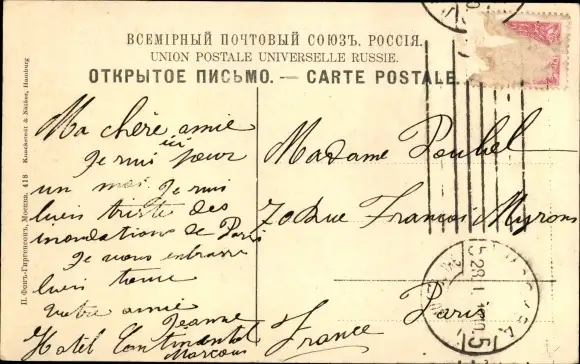 ВСЕМІРНЫЙ ПОЧТОВЫЙ СОЮЗЪ. РОССІЯ.
UNION POSTALE UNIVERSELLE RUSSIE.
ОТКРЫТОЕ ПИСЬМО. — CARTE POSTALE.
Ma chère amie
Je suis ici pour
un moi. Je suis
bien triste des
inondations de Paris
Je vous embrasse
bien
votre amie
Jeanne
Hotel Continental
Moscou
Madame Pouhel
70 Rue François Myrons
Paris
France
Knackstedt & Näther, Hamburg
П. Фонъ-Гиргенсонъ, Москва. 418
28.1.